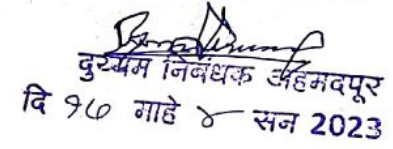 दुय्यम निबंधक अहमदपूर
दि १७ माहे ४ सन 2023